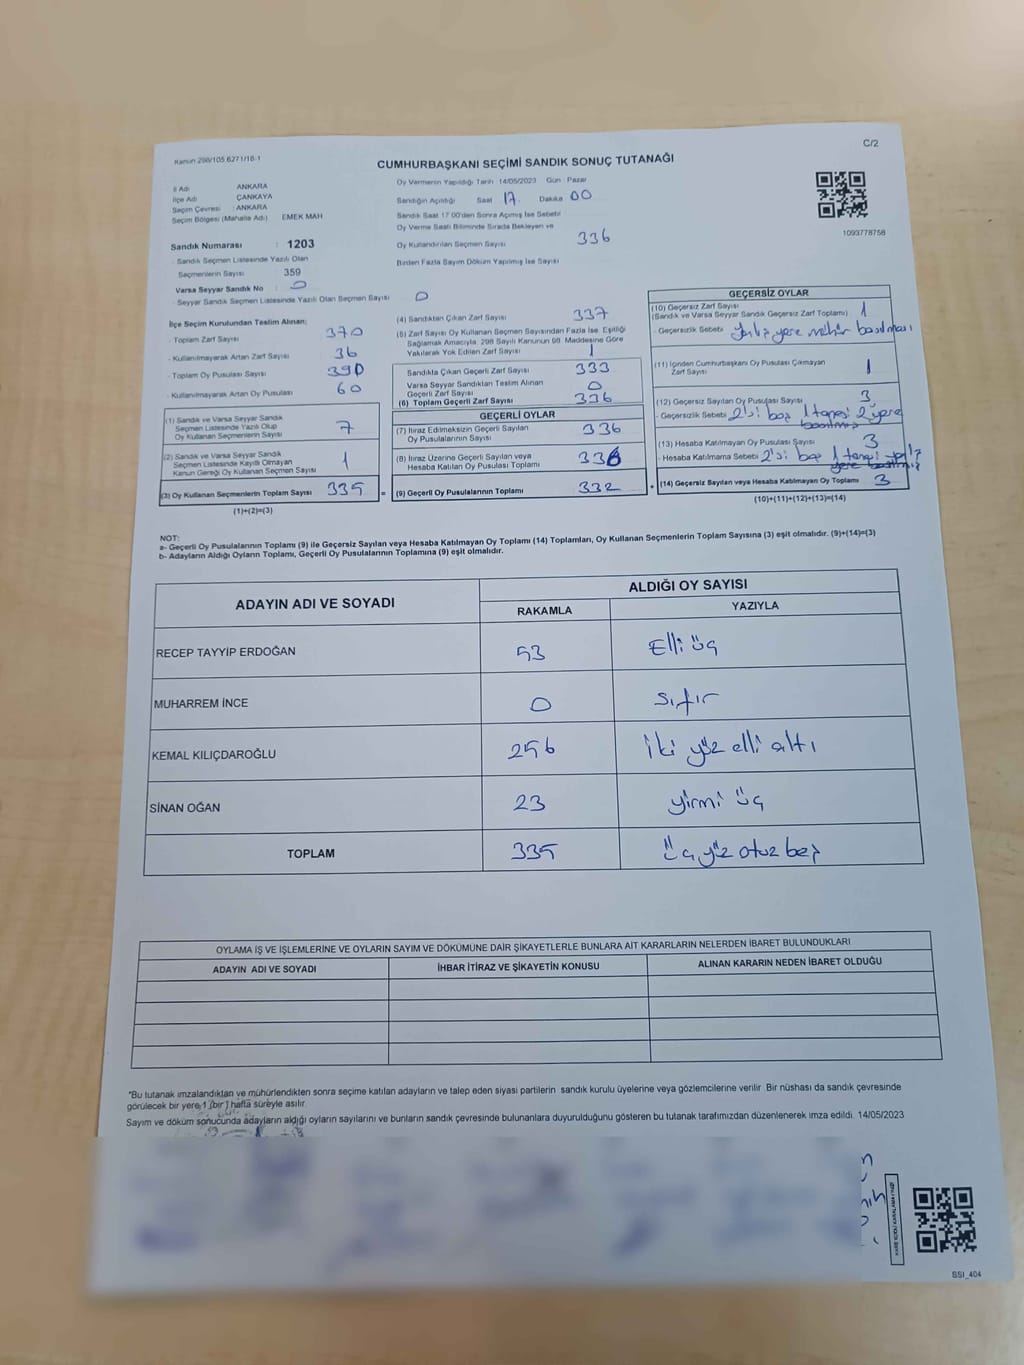 Kanun 298/105 6271/18-1
C/2
CUMHURBAŞKANI SEÇİMİ SANDIK SONUÇ TUTANAĞI
İl Adı : ANKARA
İlçe Adı : ÇANKAYA
Seçim Çevresi : ANKARA
Seçim Bölgesi (Mahalle Adı) EMEK MAH
Sandık Numarası : 1203
Sandık Seçmen Listesinde Yazılı Olan
Seçmenlerin Sayısı 359
Varsa Seyyar Sandık No : 0
Seyyar Sandık Seçmen Listesinde Yazılı Olan Seçmen Sayısı 0
Oy Vermenin Yapıldığı Tarih 14/05/2023 Gün Pazar
Sandığın Açıldığı Saat 17. Dakika 00
Sandık Saat 17 00'den Sonra Açılmış İse Sebebi
Oy Verme Saati Bitiminde Sırada Bekleyen ve
Oy Kullandırılan Seçmen Sayısı 336
Birden Fazla Sayım Döküm Yapılmış İse Sayısı
1093778758
İlçe Seçim Kurulundan Teslim Alınan;
- Toplam Zarf Sayısı 370
- Kullanılmayarak Artan Zarf Sayısı 36
- Toplam Oy Pusulası Sayısı 390
- Kullanılmayarak Artan Oy Pusulası 60
(1) Sandık ve Varsa Seyyar Sandık
Seçmen Listesinde Yazılı Olup
Oy Kullanan Seçmenlerin Sayısı 7
(2) Sandık ve Varsa Seyyar Sandık
Seçmen Listesinde Kayıtlı Olmayan
Kanun Gereği Oy Kullanan Seçmen Sayısı 1
(3) Oy Kullanan Seçmenlerin Toplam Sayısı 335
(1)+(2)=(3)
(4) Sandıktan Çıkan Zarf Sayısı 337
(5) Zarf Sayısı Oy Kullanan Seçmen Sayısından Fazla İse, Eşitliği
Sağlamak Amacıyla, 298 Sayılı Kanunun 98. Maddesine Göre
Yakılarak Yok Edilen Zarf Sayısı 1
Sandıkta Çıkan Geçerli Zarf Sayısı 333
Varsa Seyyar Sandıktan Teslim Alınan
Geçerli Zarf Sayısı 0
(6) Toplam Geçerli Zarf Sayısı 336
GEÇERLİ OYLAR
(7) İtiraz Edilmeksizin Geçerli Sayılan
Oy Pusulalarının Sayısı 336
(8) İtiraz Üzerine Geçerli Sayılan veya
Hesaba Katılan Oy Pusulası Toplamı 336
= (9) Geçerli Oy Pusulalarının Toplamı 332 +
GEÇERSİZ OYLAR
(10) Geçersiz Zarf Sayısı
(Sandık ve Varsa Seyyar Sandık Geçersiz Zarf Toplamı) 1
- Geçersizlik Sebebi Yanlış yere mühür basılması
(11) İçinden Cumhurbaşkanı Oy Pusulası Çıkmayan
Zarf Sayısı 1
(12) Geçersiz Sayılan Oy Pusulası Sayısı 3
- Geçersizlik Sebebi 2'si boş 1 tanesi 2 yere
basılmış
(13) Hesaba Katılmayan Oy Pusulası Sayısı 3
- Hesaba Katılmama Sebebi 2'si boş 1 tanesi
yere basılmış
(14) Geçersiz Sayılan veya Hesaba Katılmayan Oy Toplamı 3
(10)+(11)+(12)+(13)=(14)
NOT:
a- Geçerli Oy Pusulalarının Toplamı (9) ile Geçersiz Sayılan veya Hesaba Katılmayan Oy Toplamı (14) Toplamları, Oy Kullanan Seçmenlerin Toplam Sayısına (3) eşit olmalıdır. (9)+(14)=(3)
b- Adayların Aldığı Oyların Toplamı, Geçerli Oy Pusulalarının Toplamına (9) eşit olmalıdır.
ADAYIN ADI VE SOYADI ALDIĞI OY SAYISI
RAKAMLA YAZIYLA
RECEP TAYYİP ERDOĞAN 53 Elli üç
MUHARREM İNCE 0 sıfır
KEMAL KILIÇDAROĞLU 256 iki yüz elli altı
SİNAN OĞAN 23 yirmi üç
TOPLAM 335 üç yüz otuz beş
OYLAMA İŞ VE İŞLEMLERİNE VE OYLARIN SAYIM VE DÖKÜMÜNE DAİR ŞİKAYETLERLE BUNLARA AİT KARARLARIN NELERDEN İBARET BULUNDUKLARI
ADAYIN ADI VE SOYADI İHBAR İTİRAZ VE ŞİKAYETİN KONUSU ALINAN KARARIN NEDEN İBARET OLDUĞU
*Bu tutanak imzalandıktan ve mühürlendikten sonra seçime katılan adayların ve talep eden siyasi partilerin sandık kurulu üyelerine veya gözlemcilerine verilir. Bir nüshası da sandık çevresinde
görülecek bir yere 1 (bir) hafta süreyle asılır.
Sayım ve döküm sonucunda adayların aldığı oyların sayılarını ve bunların sandık çevresinde bulunanlara duyurulduğunu gösteren bu tutanak tarafımızdan düzenlenerek imza edildi. 14/05/2023
SSI_404